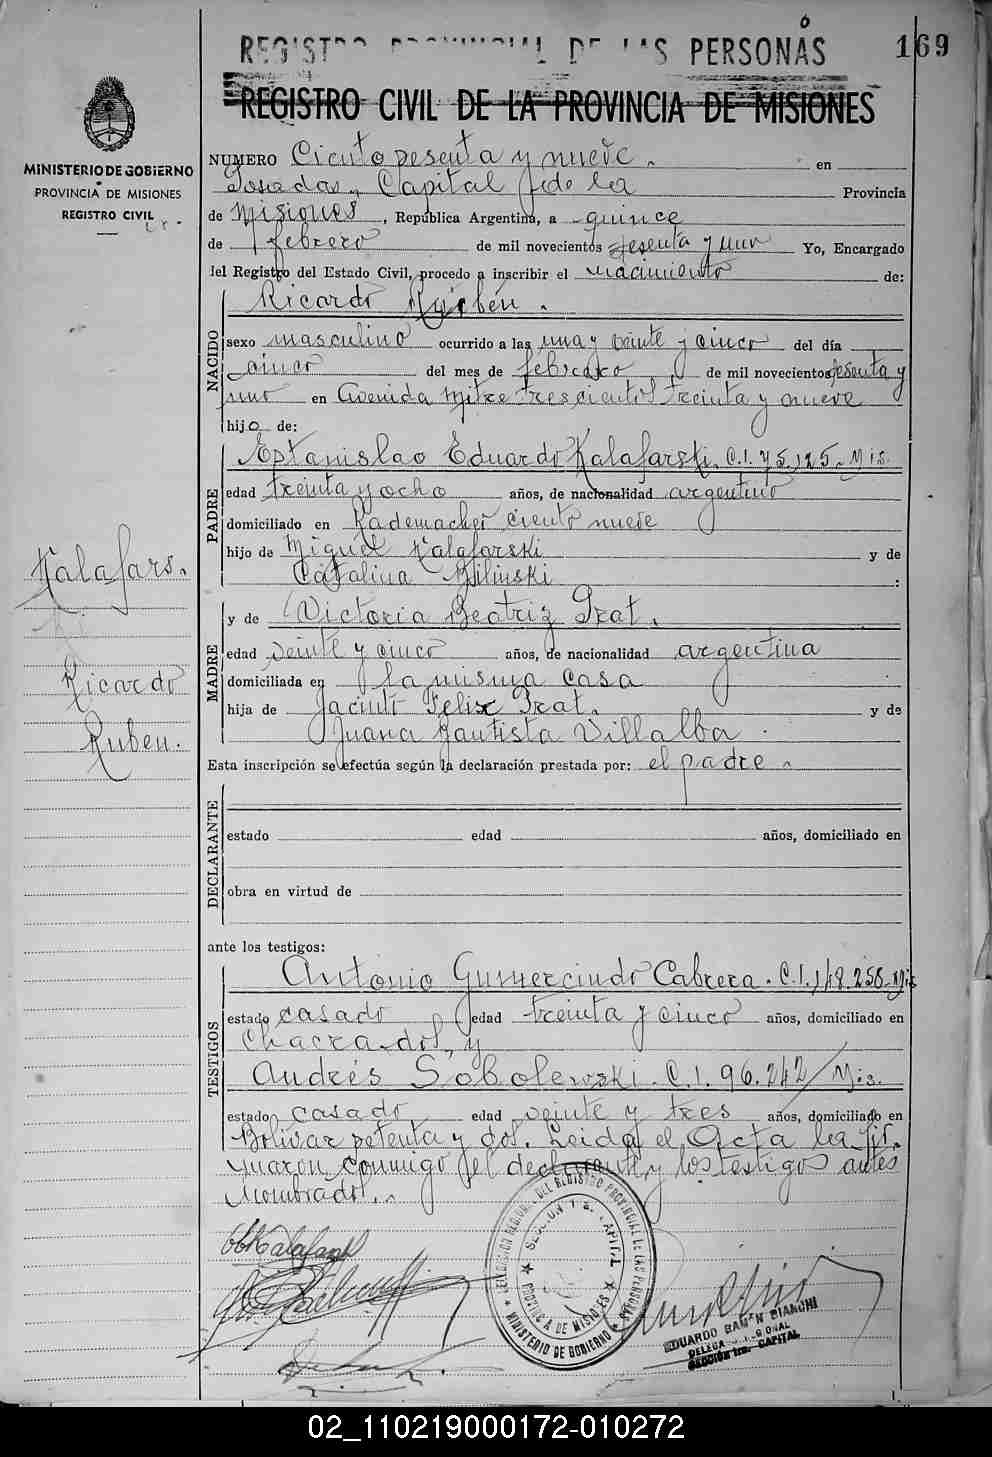 REGISTRO PROVINCIAL DE LAS PERSONAS
169
REGISTRO CIVIL DE LA PROVINCIA DE MISIONES
MINISTERIO DE GOBIERNO
PROVINCIA DE MISIONES
REGISTRO CIVIL
NUMERO Ciento sesenta y nueve. en
Posadas, Capital de la Provincia
de Misiones, República Argentina, a quince
de febrero de mil novecientos sesenta y uno Yo, Encargado
del Registro del Estado Civil, procedo a inscribir el nacimiento de:
NACIDO
Ricardo Rubén.
sexo masculino ocurrido a las una y veinte y cinco del día
cinco del mes de febrero de mil novecientos sesenta y
uno en Avenida Mitre trescientos treinta y nueve
hijo de:
PADRE
Estanislao Eduardo Kalafarski. C.I. 75.125. Mis.
edad treinta y ocho años, de nacionalidad argentino
domiciliado en Rademacher ciento nueve
hijo de Miguel Kalafarski y de
Catalina Milinski :
MADRE
y de Victoria Beatriz Prat.
edad veinte y cinco años, de nacionalidad argentina
domiciliada en la misma casa
hija de Jacinto Felix Prat. y de
Juana Bautista Villalba.
Esta inscripción se efectúa según la declaración prestada por: el padre.
DECLARANTE
estado edad años, domiciliado en
obra en virtud de
ante los testigos:
TESTIGOS
Antonio Gumercindo Cabrera. C.I. 148.258. Mis
estado casado edad treinta y cinco años, domiciliado en
Chacra dos, y
Andrés Sobolewski. C.I. 96.242/Mis.
estado casado edad veinte y tres años, domiciliado en
Bolivar setenta y dos. Leida el Acta la fir-
maron conmigo el declarante y los testigos antes
nombrados.
Kalafars.
ki
Ricardo
Ruben.
DELEGACION REGIONAL DEL REGISTRO PROVINCIAL DE LAS PERSONAS
SECCION 1ª CAPITAL
PROVINCIA DE MISIONES
MINISTERIO DE GOBIERNO
EDUARDO RAMON BIANCHI
DELEGADO REGIONAL
SECCION 1ra. CAPITAL
02_110219000172-010272